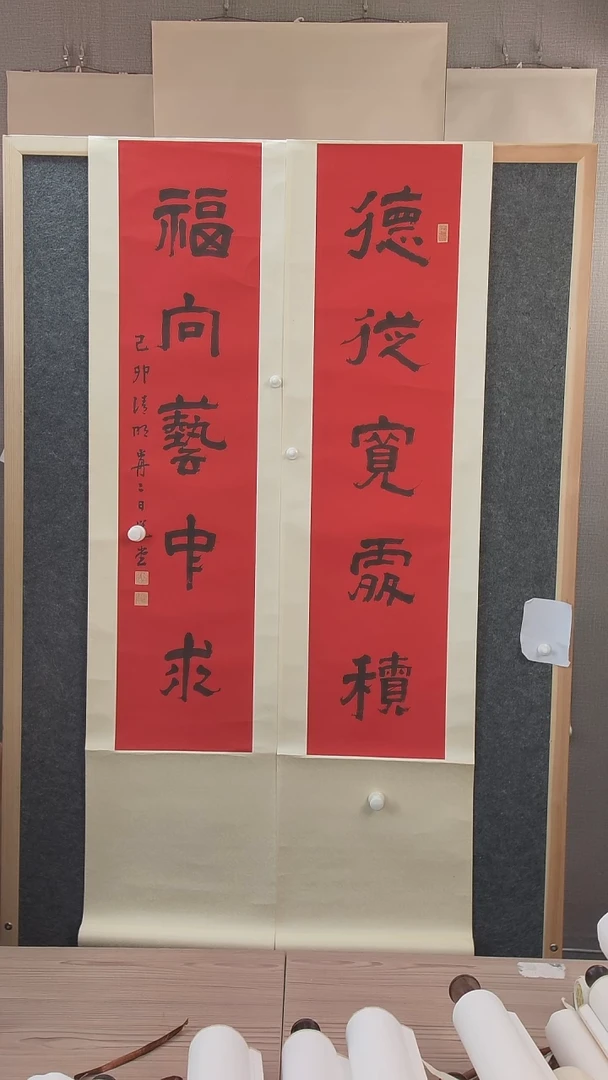 德從寬處積
福向藝中求
己卯清明前二日堂